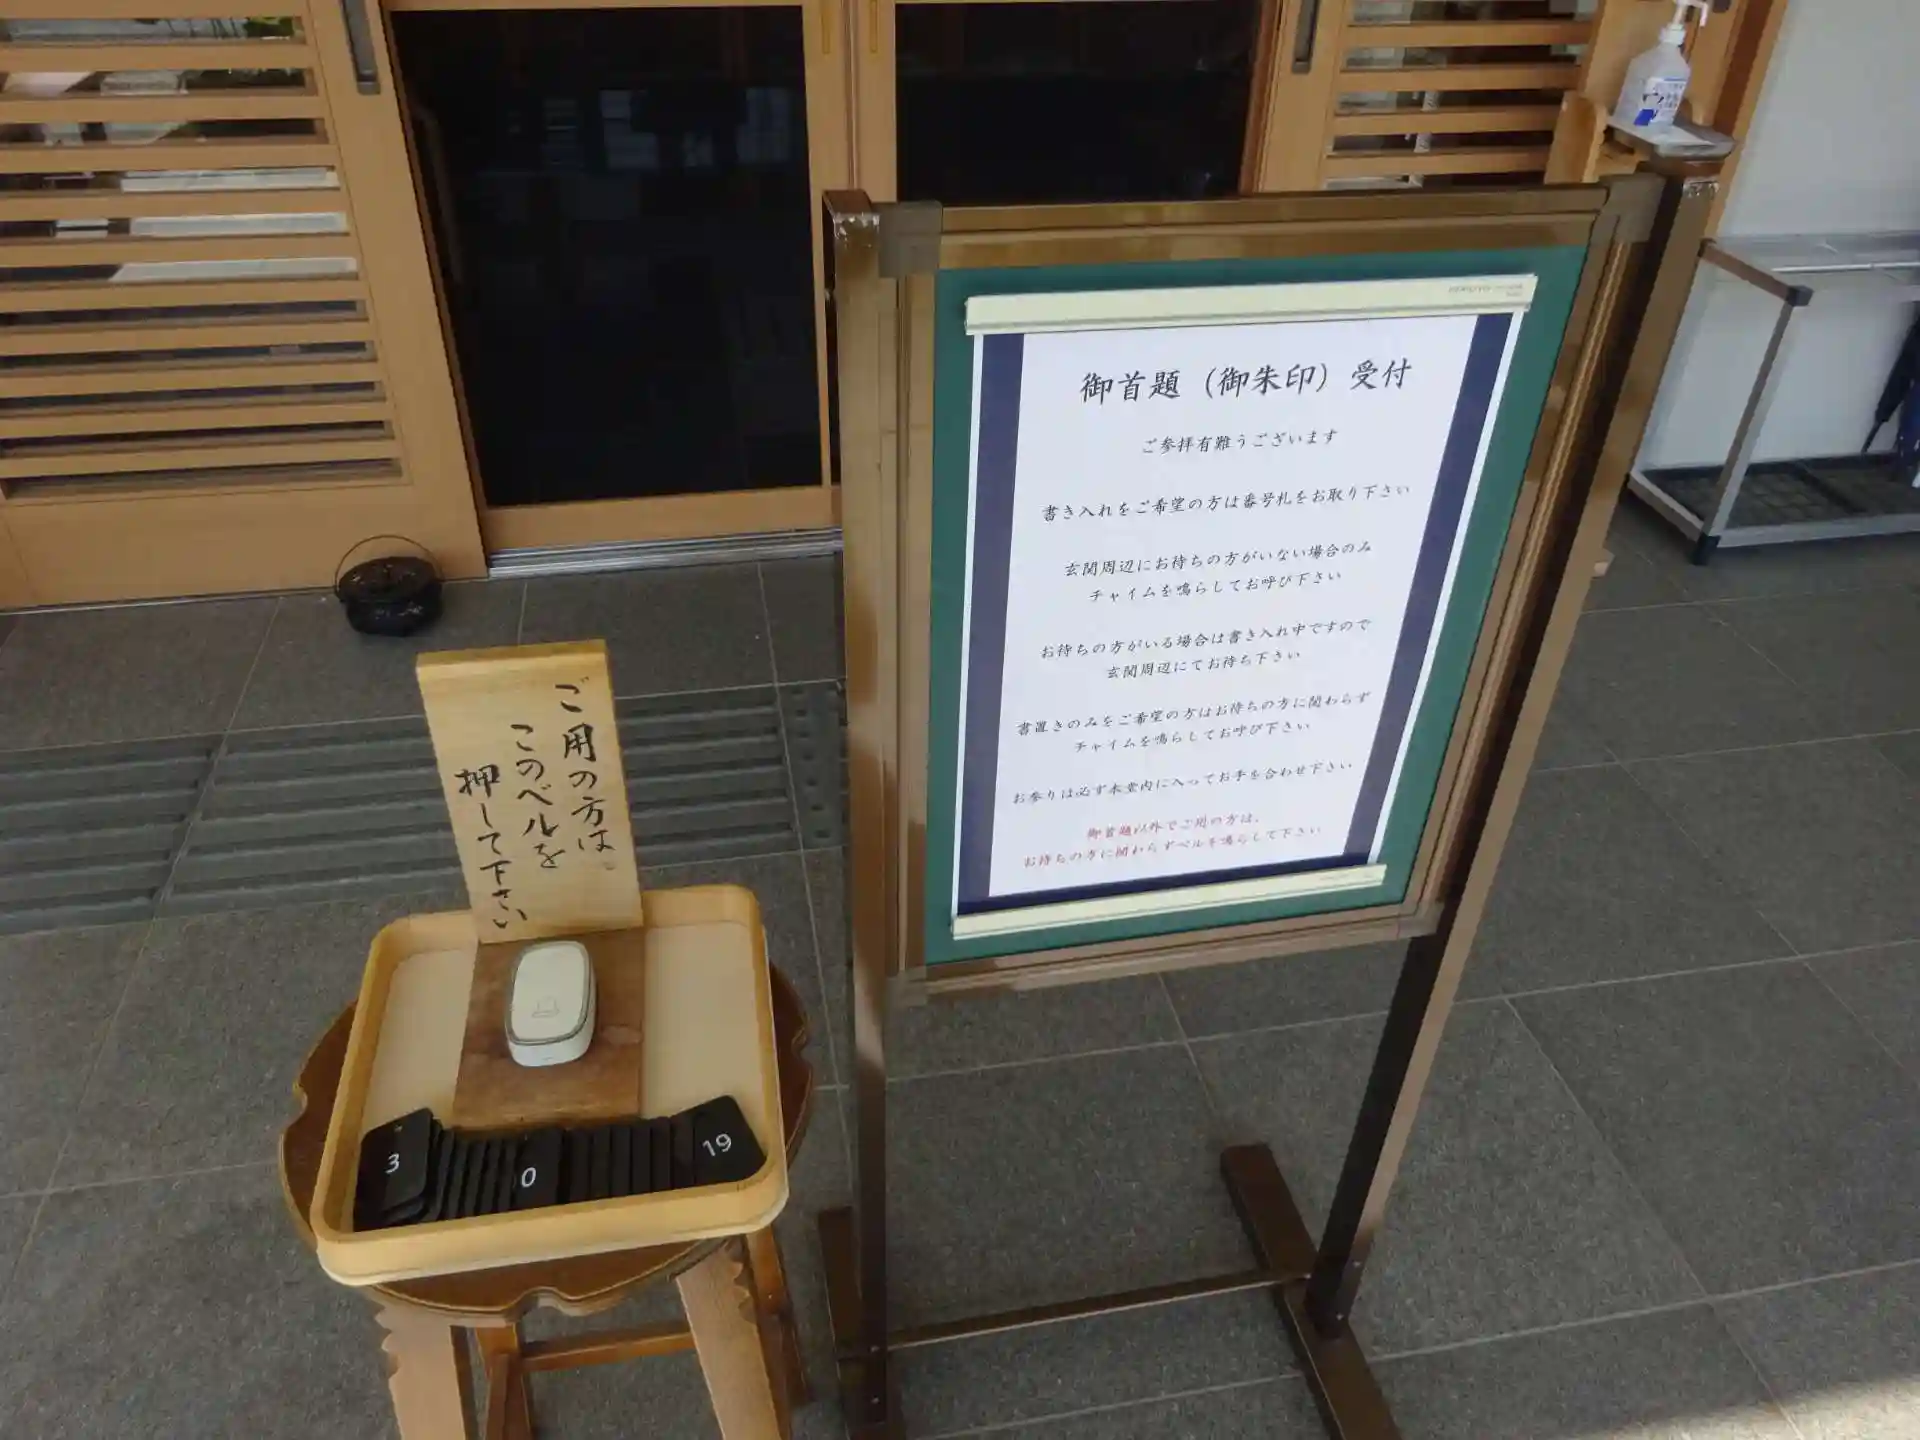 御首題（御朱印）受付
ご参拝有難うございます
書き入れをご希望の方は番号札をお取り下さい
玄関周辺にお待ちの方がいない場合のみ
チャイムを鳴らしてお呼び下さい
お待ちの方がいる場合は書き入れ中ですので
玄関周辺にてお待ち下さい
書置きのみをご希望の方はお待ちの方に関わらず
チャイムを鳴らしてお呼び下さい
お参りは必ず本堂内に入ってお手を合わせ下さい
御首題以外でご用の方は、
お待ちの方に関わらずベルを鳴らして下さい
ご用の方は
このベルを
押して下さい
3
0
19